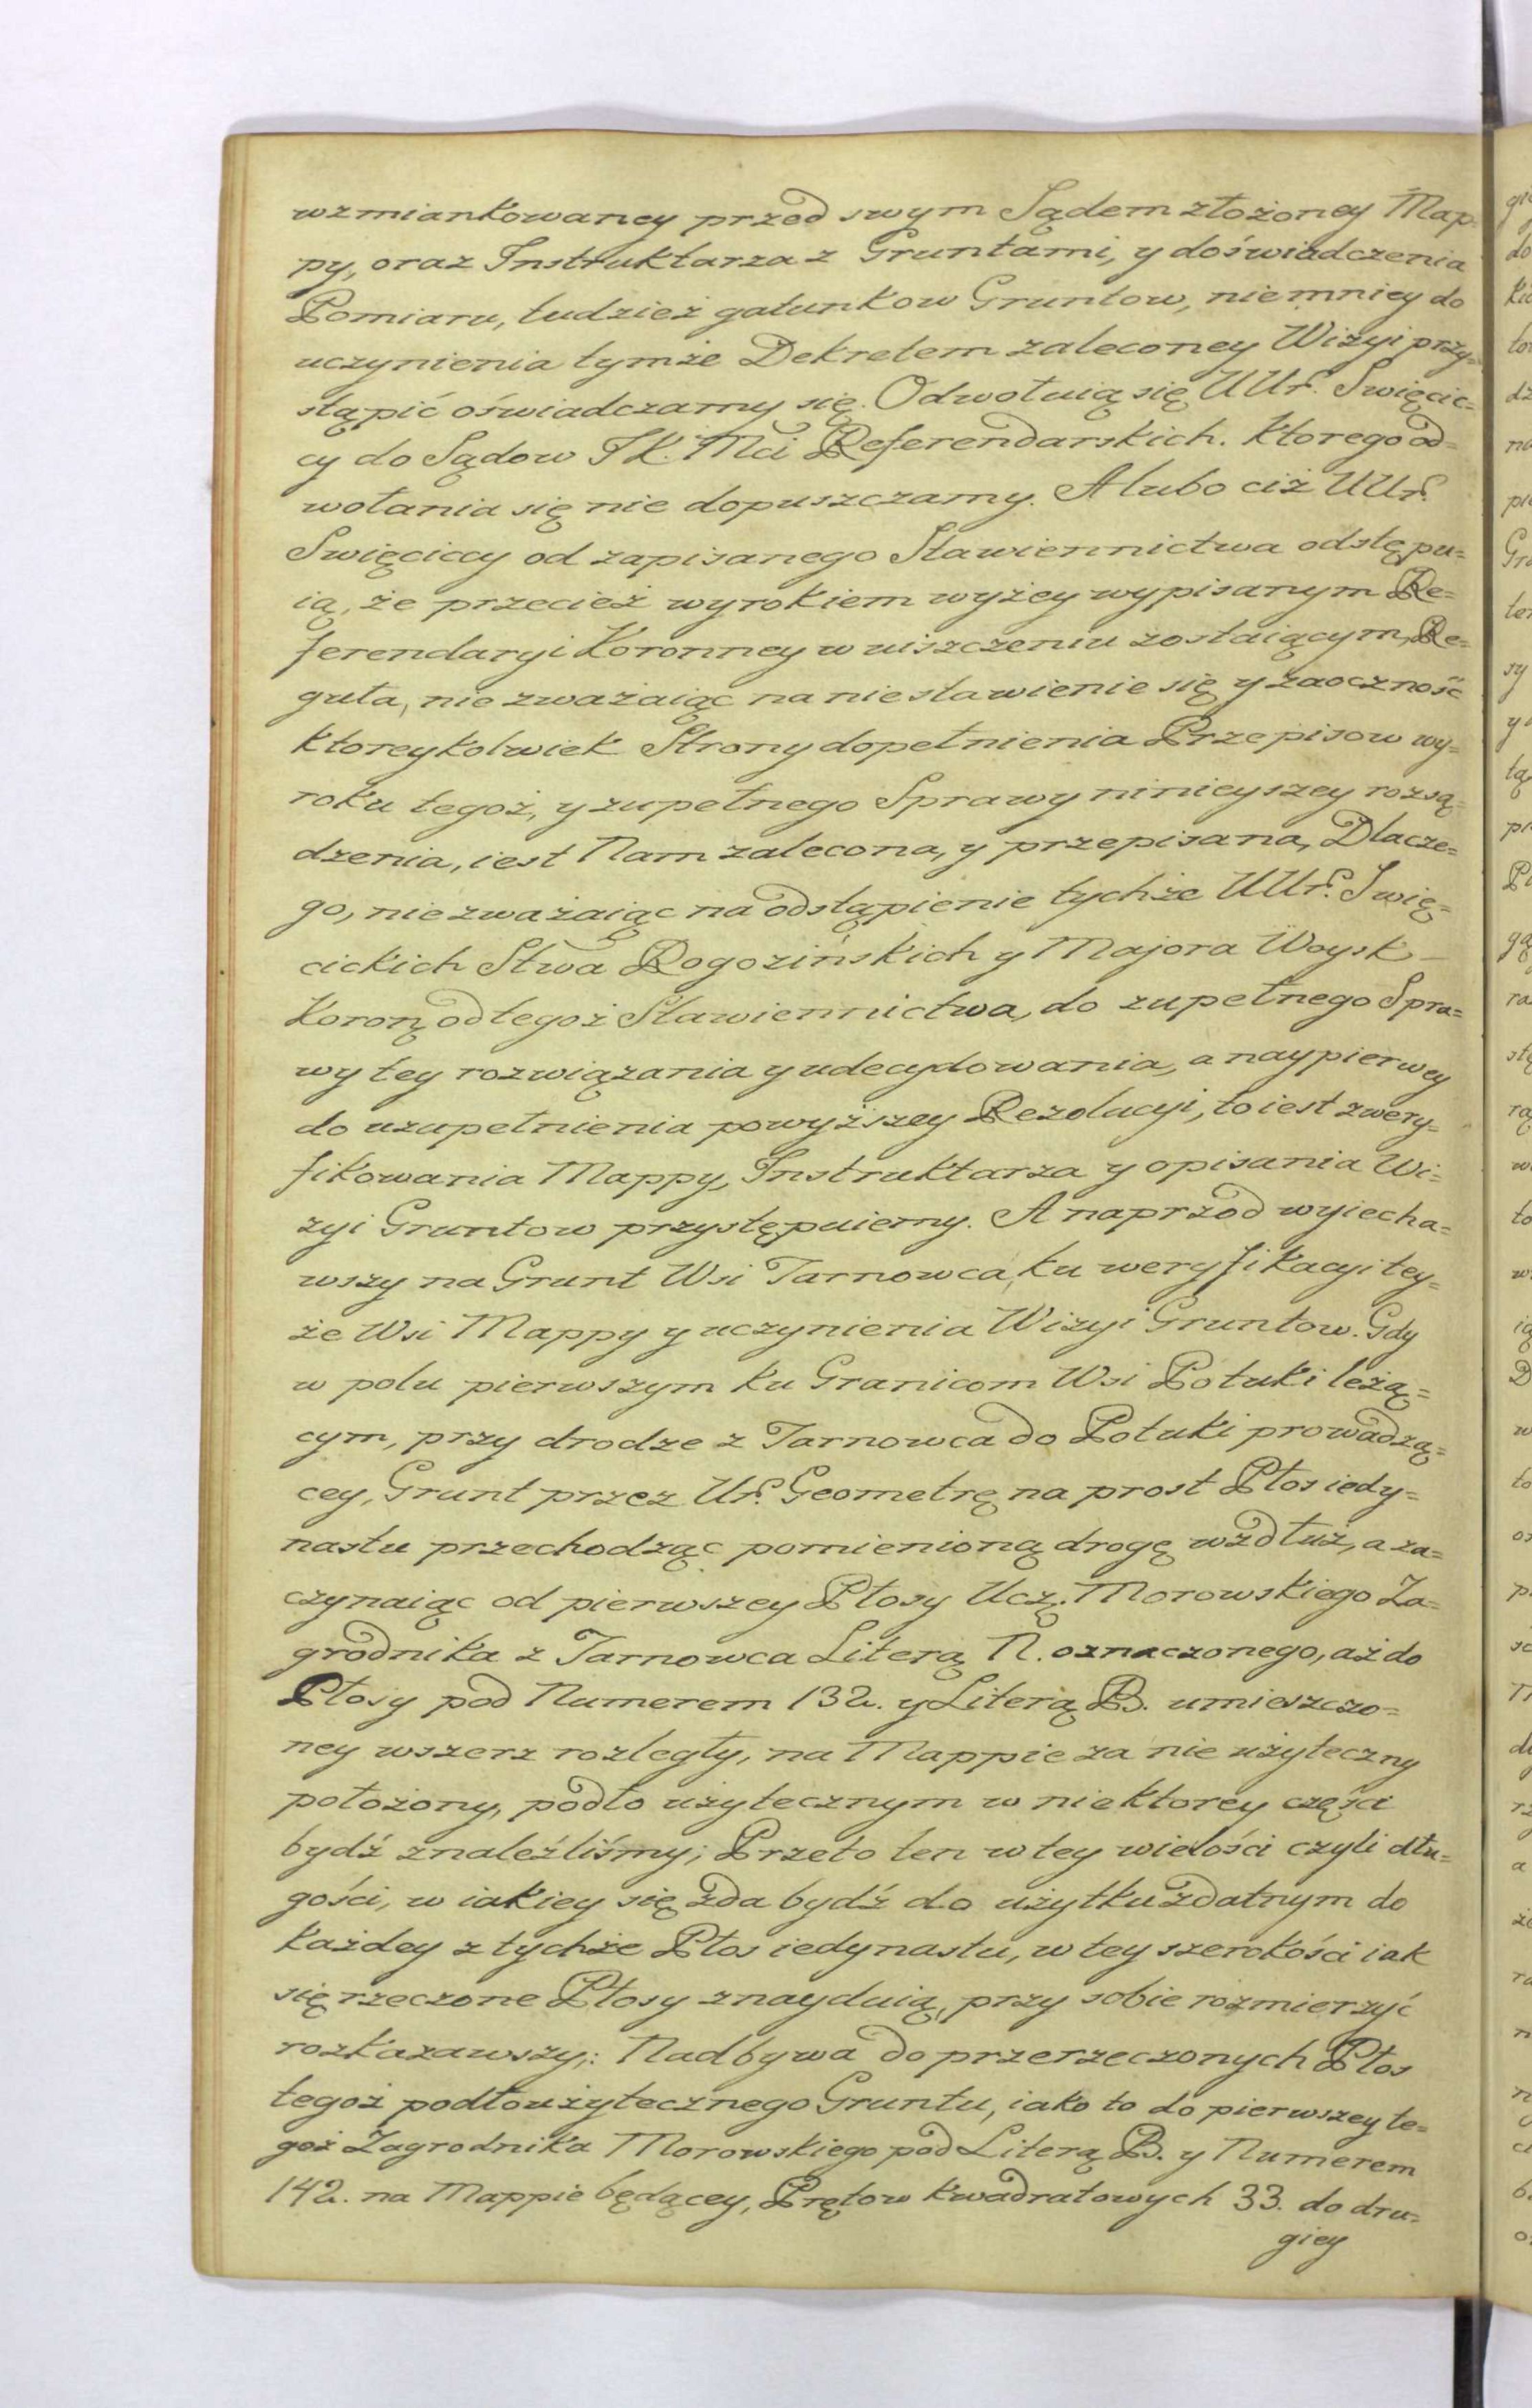 wzmiankowaney przed swym Sądem złożoney Map-
py, oraz Instruktarza z Gruntami, y doświadczenia
Pomiaru, tudzież gatunkow Gruntow, niemniey do
uczynienia tymże Dekretem zaleconey Wizyi przy=
stąpić oświadczamy się. Odwołuią się UUr. Swięcic=
cy do Sądow JK. Mci Referendarskich. Ktorego od=
wołania się nie dopuszczamy. A lubo ciż UUr.
Swięciccy od zapisanego Stawiennictwa odstępu=
ią, że przecież wyrokiem wyżey wypisanym Re=
ferendaryi Koronney w uiszczeniu zostaiącym, Re=
guła, nie zważaiąc na niestawienie się y zaoczność
ktoreykolwiek Strony dopełnienia Przepisow wy=
roku tegoż, y zupełnego Sprawy ninieyszey rozsą=
dzenia, iest Nam zalecona, y przepisana, Dlacze=
go, nie zważaiąc na odstąpienie tychże UUr. Swię=
cickich Stwa Rogozińskich y Majora Woysk
Koron. od tegoż Stawiennictwa, do zupełnego Spra=
wy tey rozwiązania y udecydowania, a naypierwey
do uzupełnienia powyższey Rezolucyi, to iest zwery=
fikowania Mappy, Instruktarza y opisania Wi=
zyi Gruntow przystępuiemy. A naprzod wyiecha=
wszy na Grunt Wsi Tarnowca, ku weryfikacyi tey=
że Wsi Mappy y uczynienia Wizyi Gruntow. Gdy
w polu pierwszym ku Granicom Wsi Potuki leżą=
cym, przy drodze z Tarnowca do Potuki prowadzą=
cey, Grunt przez Ur. Geometrę na prost Płos iedy=
nastu przechodząc pomienioną drogę wzdłuż, a za=
czynaiąc od pierwszey Płosy Ucz. Morowskiego Za=
grodnika z Tarnowca Literą N. oznaczonego, aż do
Płosy pod Numerem 132. y Literą B. umieszczo=
ney wszerz rozległy, na Mappie za nie użyteczny
położony, podło użytecznym w niektorey części
bydź znaleźliśmy; Przeto ten w tey wielości czyli dłu=
gości, w iakiey się zda bydź do użytku zdatnym do
każdey z tychże Płos iedynastu, w tey szerokości iak
się rzeczone Płosy znayduią, przy sobie rozmierzyć
rozkazawszy;: Nadbywa do przerzeczonych Płos
tegoż podłoużytecznego Gruntu, iako to do pierwszey te=
goż Zagrodnika Morowskiego pod Literą B. y Numerem
142. na Mappie będącey, Prętow kwadratowych 33. do dru=
giey